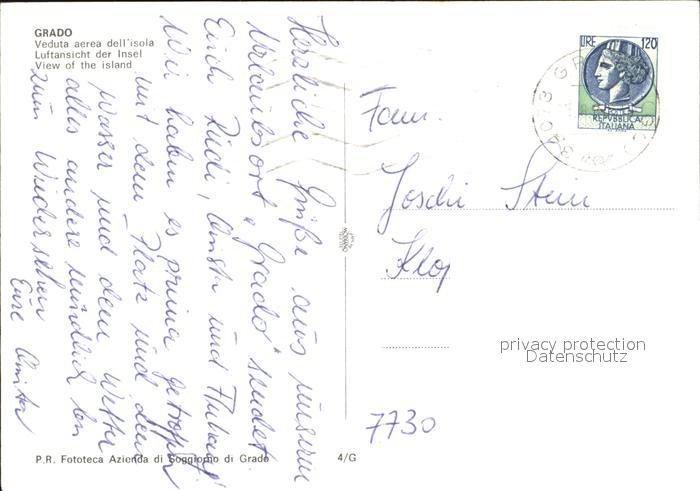 GRADO
Veduta aerea dell'isola
Luftansicht der Insel
View of the island
Herzliche Grüße aus unserem
Urlaubsort „Grado" sendet
Euch Rudi, Anita und
Wir haben es prima getroffen
mit dem Platz und dem
Wasser und dem Wetter
alles andere mündlich bei
zum Wiedersehen
Eure Anita
LIRE 120
REPVBBLICA
ITALIANA
Fam.
Joschi Stein
7730
privacy protection
Datenschutz
P.R. Fototeca Azienda di Soggiorno di Grado
4/G